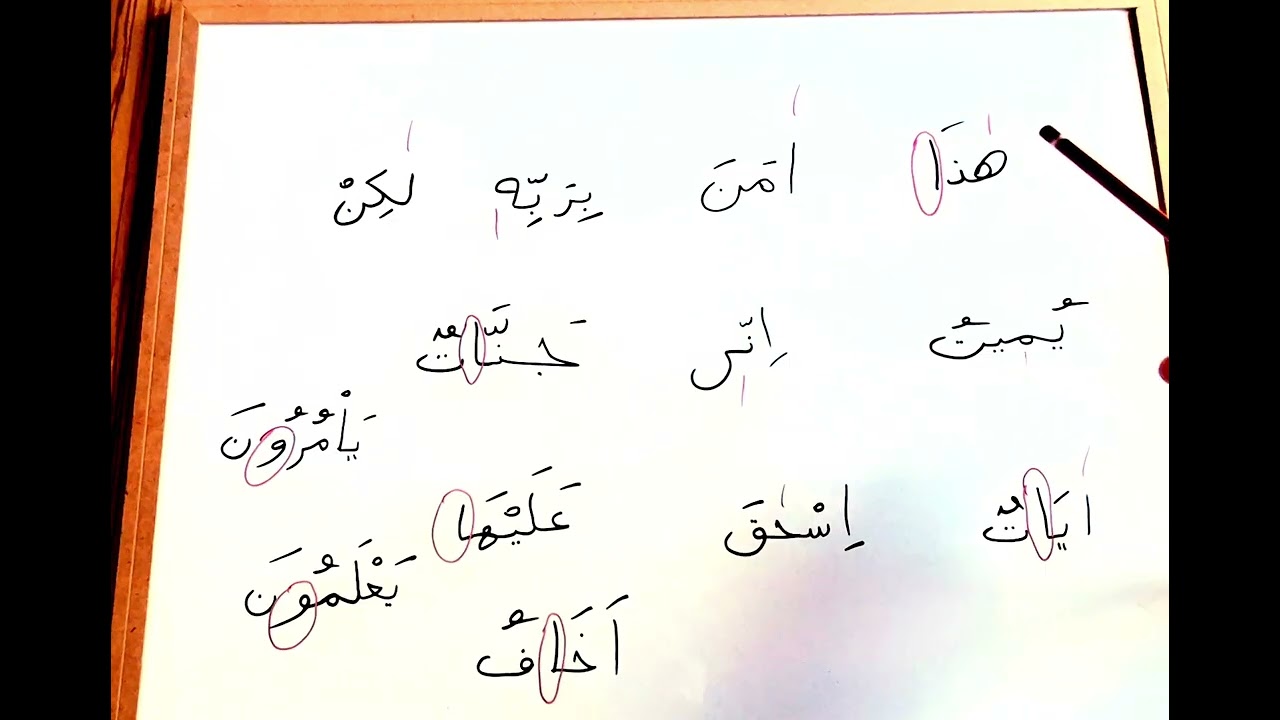 هٰذَا اٰمَنَ بِرَبِّهٖ لٰكِنْ
يُمٖيتُ اِنّٖى جَنَّاتٌ
يَاْمُرُونَ
اٰيَاتٌ اِسْحٰقَ عَلَيْهَا
يَعْلَمُونَ
اَخَافُ